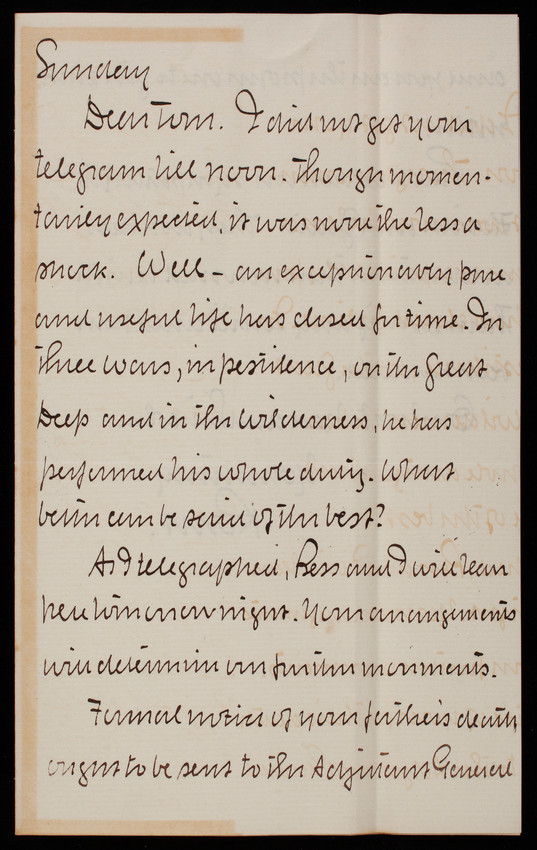 Sunday
Dear Tom. I did not get your
telegram till noon. Though momen-
tarily expected, it was none the less a
shock. Well – an exceptionally pure
and useful life has closed for time. In
three wars, in pestilence, on the Great
Deep and in the Wilderness, he has
performed his whole duty. What
better can be said of the best?
As I telegraphed, Bess and I will leave
here tomorrow night. Your arrangements
will determine our further movements.
Formal notice of your father's death
ought to be sent to the Adjutant General